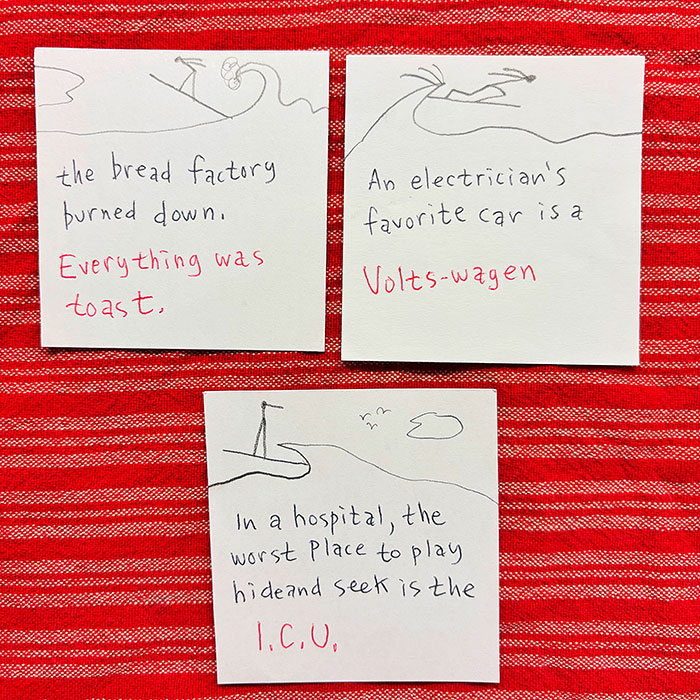 the bread factory
burned down.
Everything was
toast.
An electrician's
favorite car is a
Volts-wagen
In a hospital, the
worst Place to play
hideand seek is the
I.C.U.